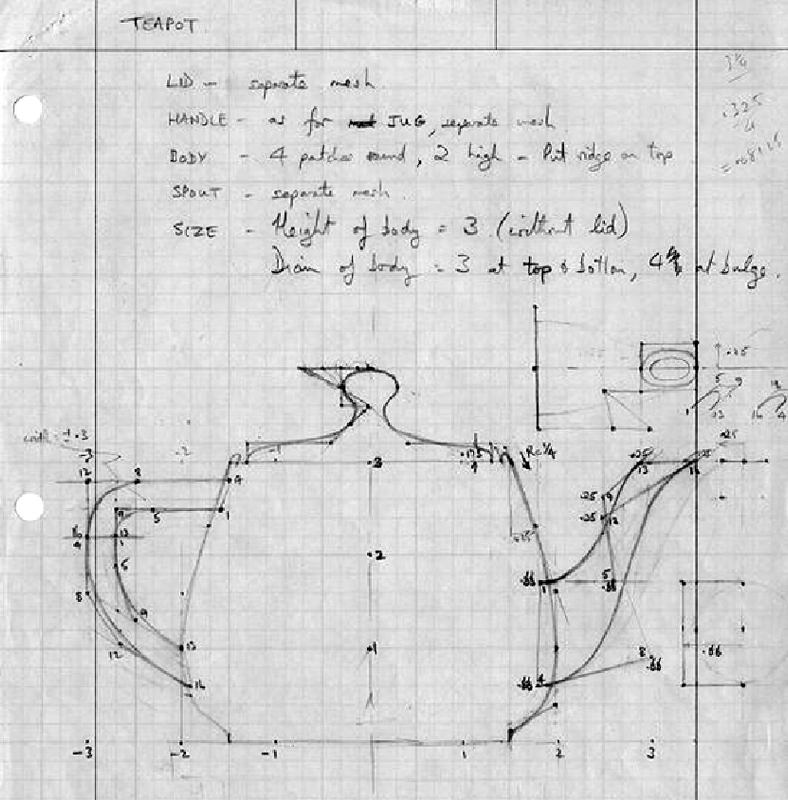 TEAPOT
LID - separate mesh.
HANDLE - as for JUG, separate mesh
BODY - 4 patches round, 2 high - Put ridge on top
SPOUT - separate mesh.
SIZE - Height of body = 3 (without lid)
Diam of body = 3 at top & bottom, 4 at bulge.
.325
4
=.08125
.25
5 9
1 13
16
.25
width = ±.3
-3
-2
-1
3
.175
1
R=1/4
.25
13
.25
16
12
8
4
9
5
1
.25 9
.25 12
16
4
13
1
.425
2
5
8
5
.66
1
5
.66
9
12
13
1
8
.66
.66
16
.66
4
-3
-2
-1
1
2
3